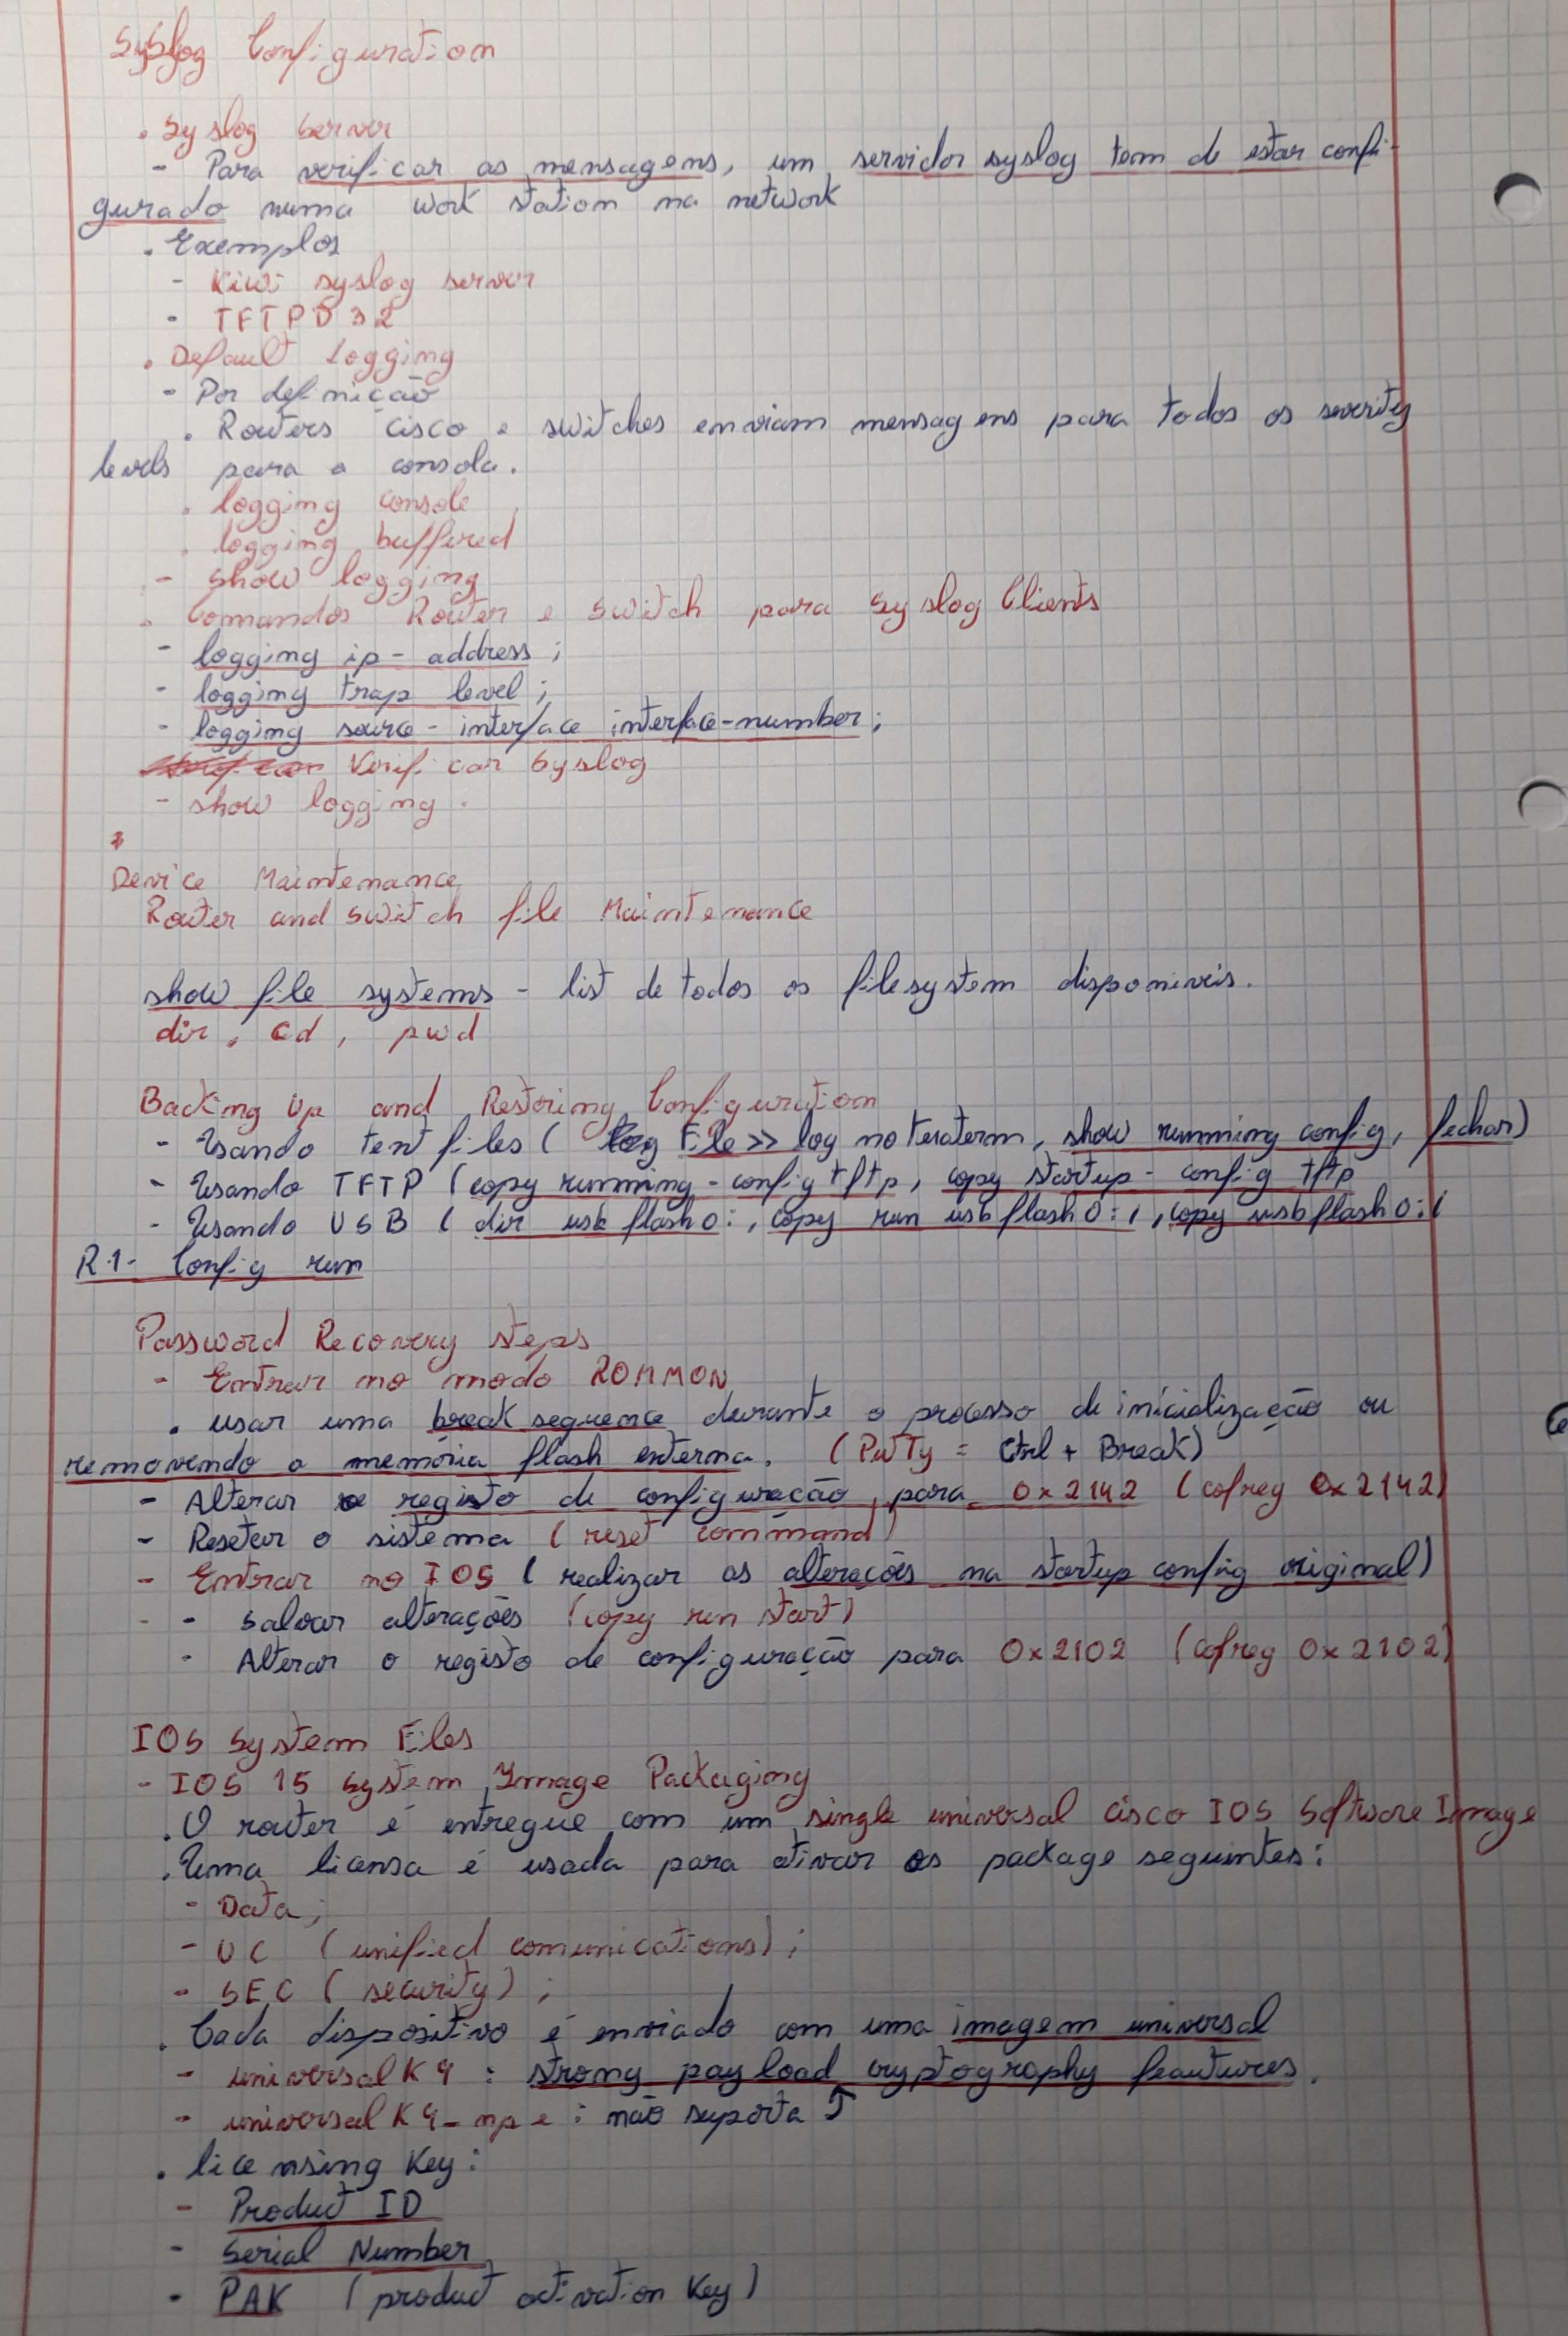 Syslog Configuration
. Syslog Server
- Para verificar as mensagens, um servidor syslog tem de estar confi-
gurado numa work station na network
. Exemplos
- Kiwi syslog server
- TFTPD32
. Default Logging
- Por definição
. Routers cisco e switches enviam mensagens para todos os severity
levels para a consola.
. logging console
. logging buffered
- show logging
. Comandos Router e Switch para Syslog Clients
- logging ip-address ;
- logging trap level ;
- logging source-interface interface-number ;
Verificar Syslog
- show logging .
Device Maintenance
Router and Switch file Maintenance
show file systems - list de todos os filesystem disponiveis.
dir, cd, pwd
Backing Up and Restoring Configuration
- Usando text files ( File >> log no Teraterm, show running config, fechar)
- Usando TFTP (copy running-config tftp, copy startup-config tftp
- Usando USB ( dir usbflash0:, copy run usbflash0:/, copy usbflash0:/
R1-Config run
Password Recovery steps
- Entrar no modo ROMMON
. usar uma break sequence durante o processo de inicialização ou
removendo a memória flash externa. (PuTTy = Ctrl + Break)
- Alterar o registo de configuração para 0x2142 (cofreg 0x2142)
- Resetar o sistema (reset command)
- Entrar no IOS ( realizar as alterações na startup config original)
- Salvar alterações (copy run start)
- Alterar o registo de configuração para 0x2102 (cofreg 0x2102)
IOS System Files
- IOS 15 System Image Packaging
. O router é entregue com um single universal cisco IOS Software Image
. Uma licensa é usada para ativar os package seguintes:
- Data ;
- UC (unified comunications) ;
- SEC (security) ;
. Cada dispositivo é enviado com uma imagem universal
- universalK9 : strong payload cryptography feautures.
- universalK9_npe : não suporta ↑
. licensing Key :
- Product ID
- Serial Number
- PAK (product activation Key)